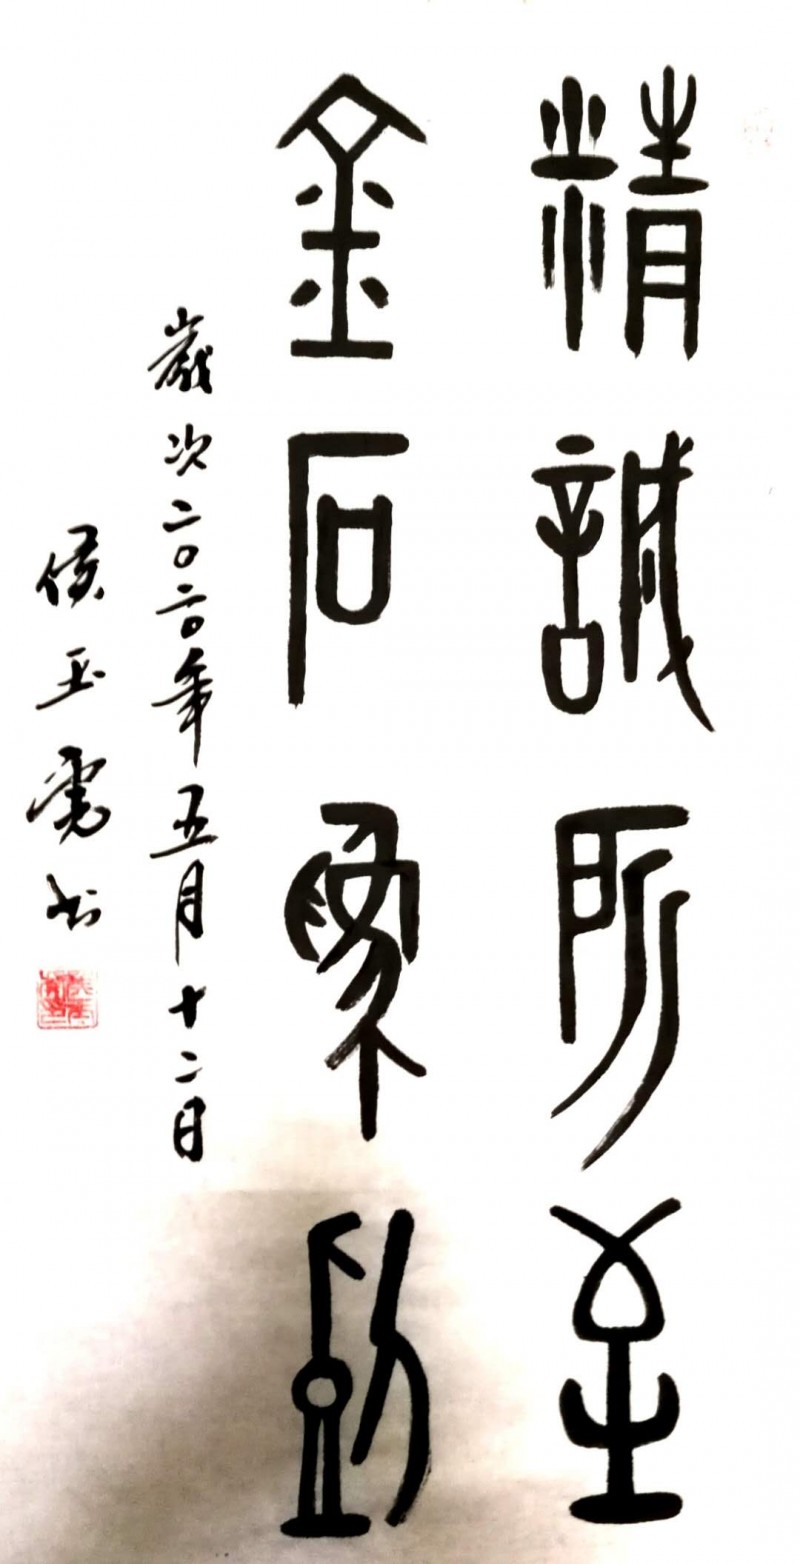 精誠所至
金石爲動
歲次二〇二〇年五月十二日
侯玉书